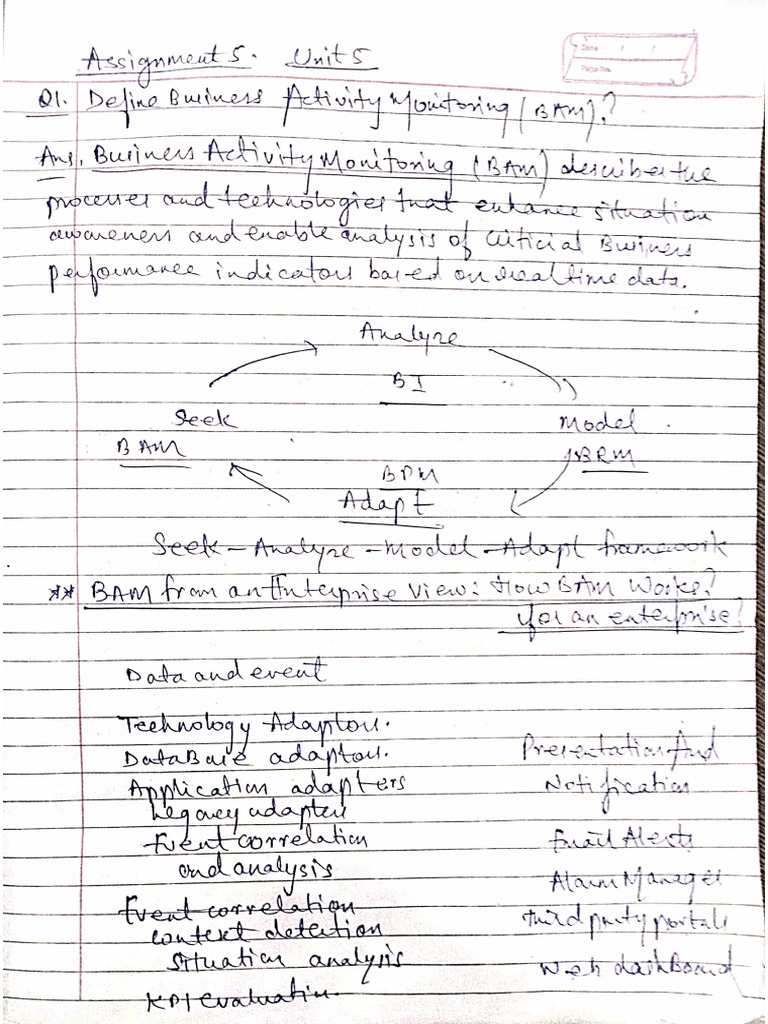 Assignment 5. Unit 5
Q1. Define Business Activity Monitoring (BAM).?
Ans. Business Activity Monitoring (BAM) describes the
processes and technologies that enhance situation
awareness and enable analysis of criticial Business
performance indicators based on real time data.
Analyze
BI
Seek
Model
BAM
BRM
BPM
Adapt
Seek – Analyze – Model – Adapt framework
** BAM from an Enterprise View: How BAM Works?
for an enterprise?
Data and event
Technology Adaptors.
DataBase adaptors.
Application adapters
Legacy adapters
Event correlation
and analysis
Event correlation
context detection
Situation analysis
KPI evaluation.
Presentation And
Notification
Email Alerts
Alarm Manager
third party portals
Web dashBoard